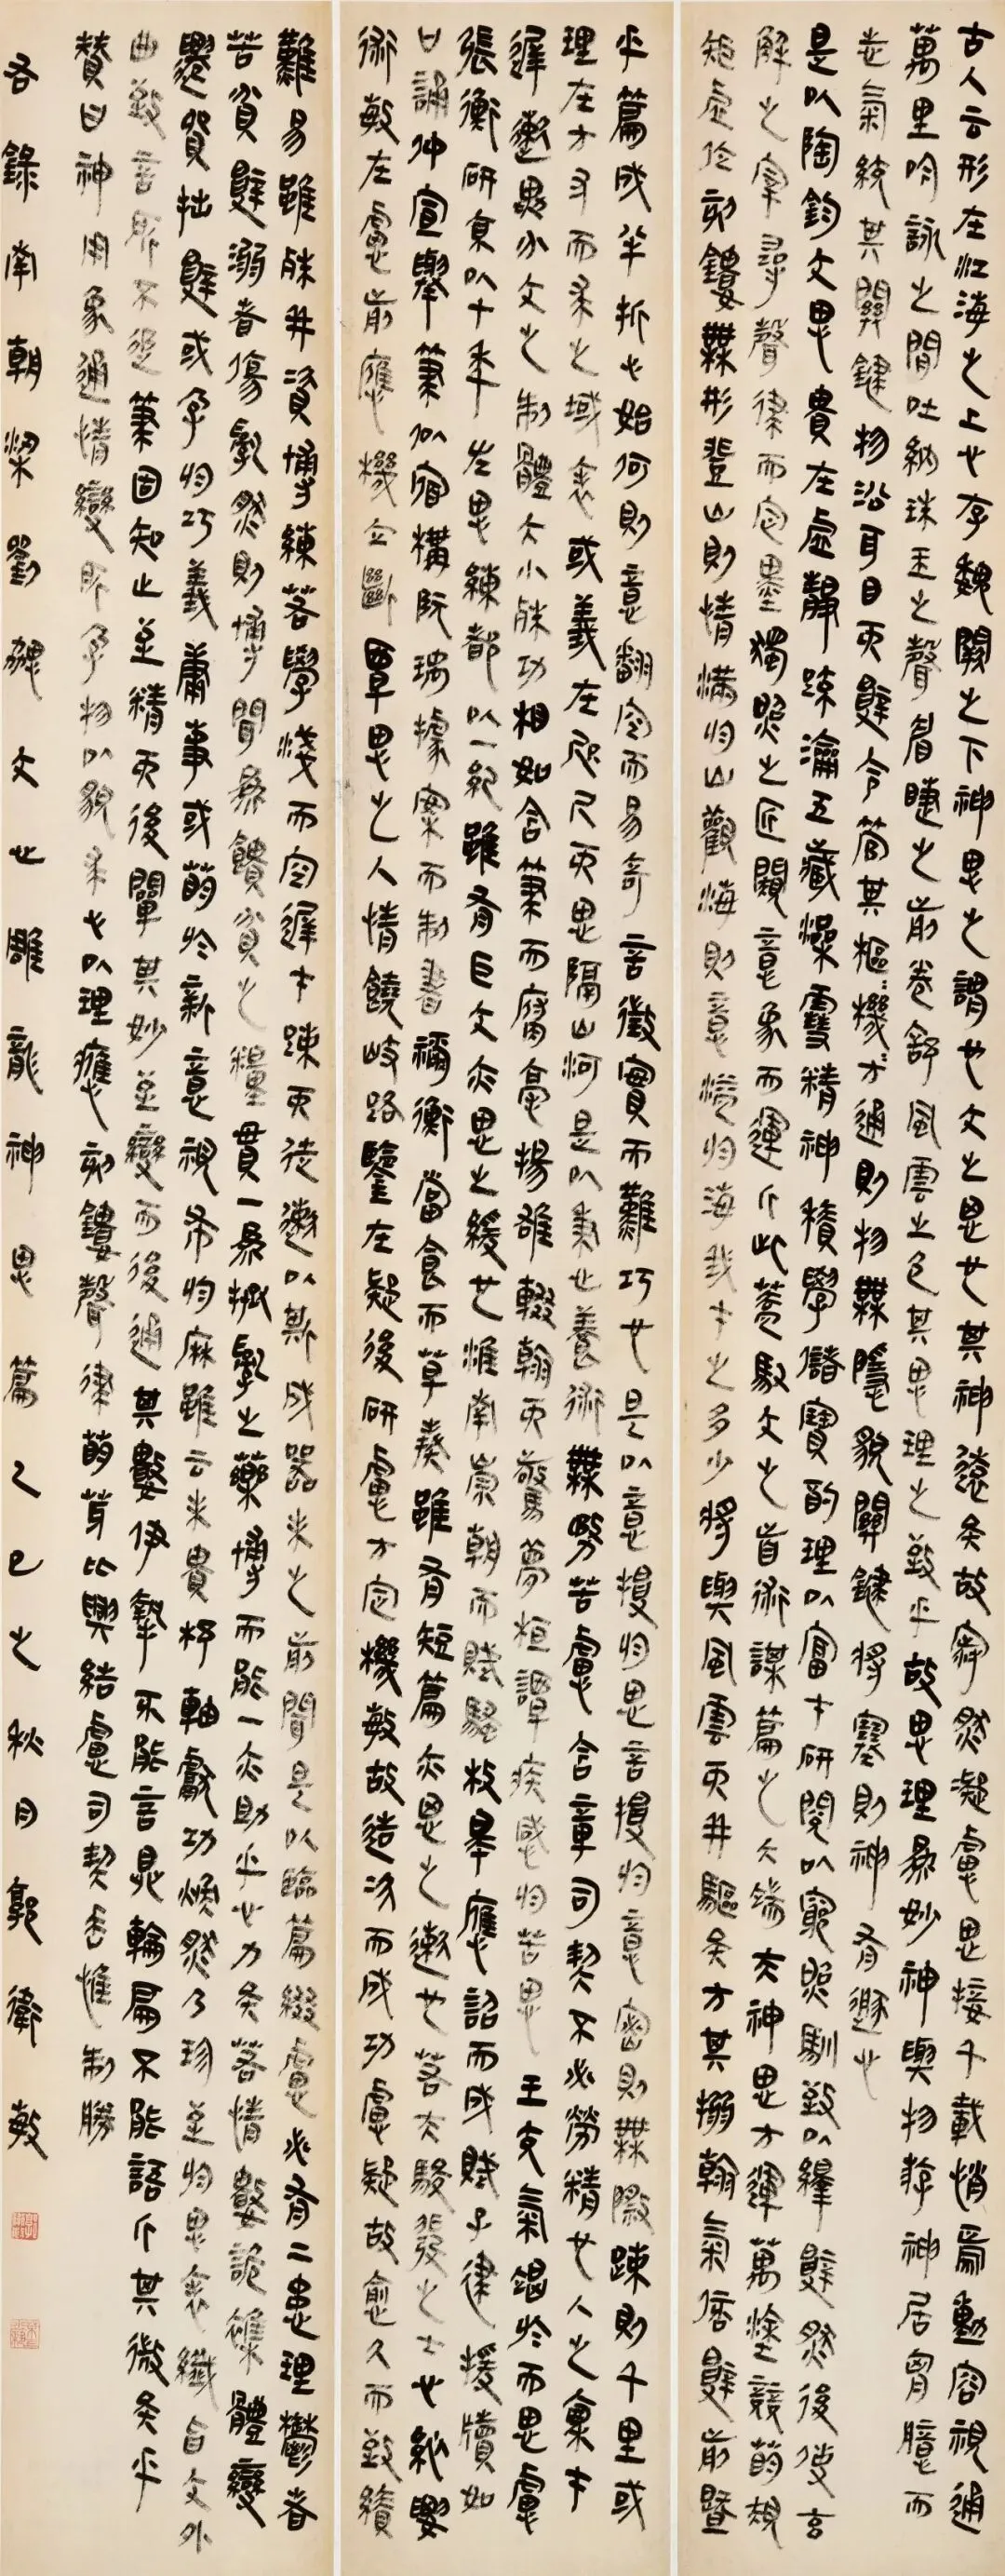 古人云形在江海之上心存魏闕之下神思之謂也文之思也其神遠矣故寂然凝慮思接千載悄焉動容視通
萬里吟詠之間吐納珠玉之聲眉睫之前卷舒風雲之色其思理之致乎故思理為妙神與物游神居胸臆而
志氣統其關鍵物沿耳目而辭令管其樞〻機方通則物無隱貌關鍵將塞則神有遯心
是以陶鈞文思貴在虛靜疏瀹五藏澡雪精神積學儲寶酌理以富才研閱以窮照馴致以繹辭然後使玄
解之宰尋聲律而定墨獨照之匠闚意象而運斤此蓋馭文之首術謀篇之大端夫神思方運萬塗競萌規
矩虛位刻鏤無形登山則情滿於山觀海則意溢於海我才之多少將與風雲而並驅矣方其搦翰氣倍辭前暨
乎篇成半折心始何則意翻空而易奇言徵實而難巧也是以意授於思言授於意密則無際疏則千里或
理在方寸而求之域表或義在咫尺而思隔山河是以秉心養術無務苦慮含章司契不必勞精也人之稟才
遲速異分文之制體大小殊功相如含筆而腐毫揚雄輟翰而驚夢桓譚疾感於苦思王充氣竭於而思慮
張衡研京以十年左思練都以一紀雖有巨文亦思之緩也淮南崇朝而賦騷枚皋應詔而成賦子建援牘如
口誦仲宣舉筆似宿構阮瑀據案而制書禰衡當食而草奏雖有短篇亦思之速也若夫駿發之士心總要
術敏在慮前應機立斷覃思之人情饒岐路鑒在疑後研慮方定機敏故造次而成功慮疑故愈久而致績
難易雖殊並資博練若學淺而空遲才疏而徒速以斯成器未之前聞是以臨篇綴慮必有二患理鬱者
苦貧辭溺者傷亂然則博聞為饋貧之糧貫一為拯亂之藥博而能一亦助乎心力矣若情數詭雜體變
遷貿拙辭或孕於巧義庸事或萌於新意視布於麻雖云未貴杼軸獻功煥然乃珍至於思表纖旨文外
曲致言所不追筆固知止至精而後闡其妙至變而後通其數伊摯不能言鼎輪扁不能語斤其微矣乎
贊曰神用象通情變所孕物以貌求心以理應刻鏤聲律萌芽比興結慮司契垂帷制勝
右錄南朝梁劉勰文心雕龍神思篇乙巳之秋月郭衛敏